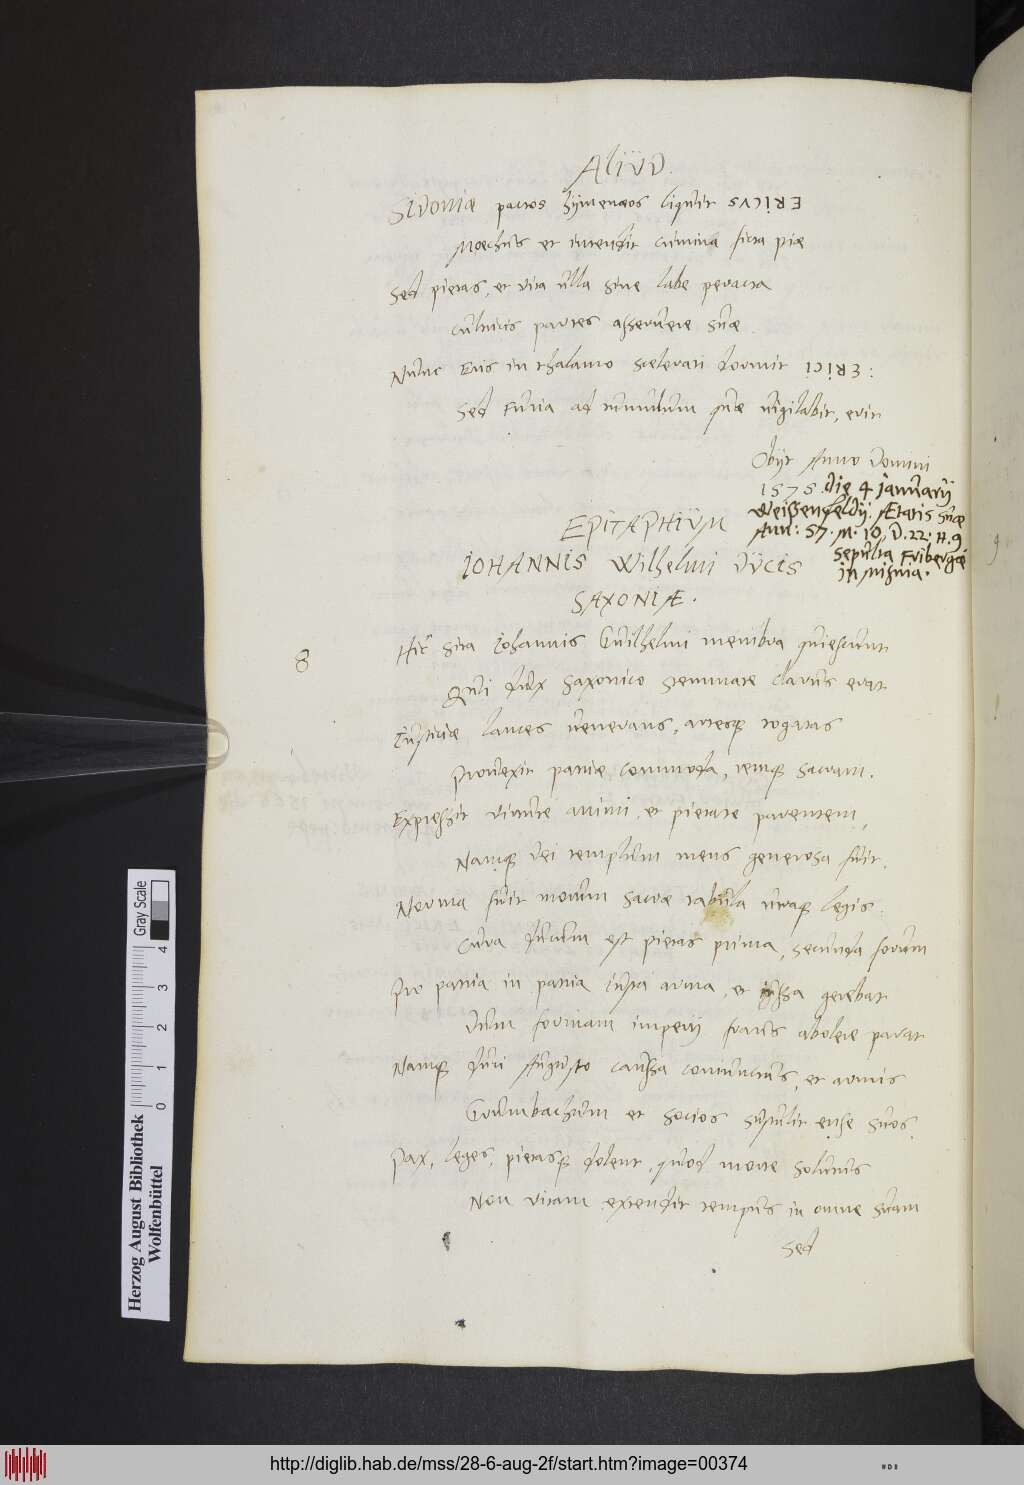 Aliud.
Sidoniæ pactos hymenæos liquit ERICVS
Moechus et intendit crimina ficta piæ
Sed pietas, et vita ulla sine labe peracta
cultricis partes asseruere suæ.
Nunc Eris in thalamo scelerati dormit ERICI:
Sed Furia ad tumulum quæ vigilabit, erit
Obijt Anno Domini
1575. die 4 Januarij
Weissenfeldij. Ætatis suæ
Ann: 57. M. 10, D. 22. H. 9
sepulta Fribergæ
in Misnia.
EPITAPHIUM
IOHANNIS Wilhelmi DUCIS
SAXONIÆ.
8
Hic sita Iohannis Guilhelmi membra quiescunt
Qui dux Saxonico stemmate clarus erat
Iusticiæ lances venerans, artesq togatas
Provexit patriæ commoda, remq sacram.
Expressit virtute animi, et pietate parentem,
Namq Dei templum mens generosa fuit.
Norma fuit morum sacræ tabula utraq legis:
Cura ducum est pietas prima, secunda forum
Pro patria in patria iusta arma, et iussa gerebat
Dum formam imperij fraus abolere parat
Namq duci Augusto caussa coniunctus, et armis
Grumbachium et socios sustulit ense suos.
Pax, leges, pietasq dolent, quod morte solutus
Non vitam extendit tempus in omne suam
Sed
Herzog August Bibliothek
Wolfenbüttel
0 1 2 3 4
Gray Scale
http://diglib.hab.de/mss/28-6-aug-2f/start.htm?image=00374